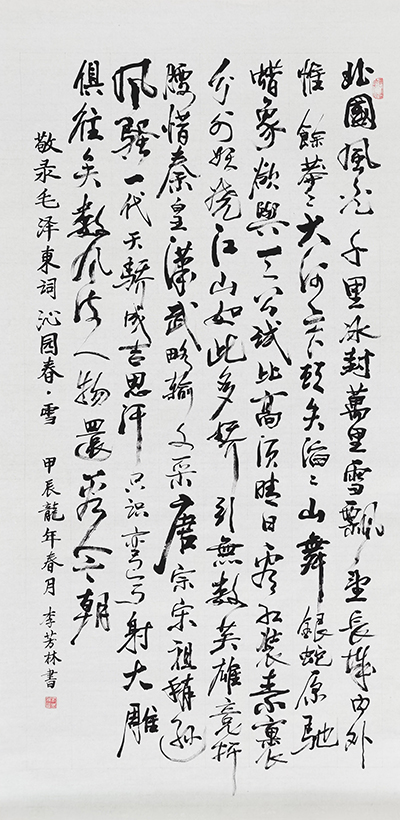 北國風光千里冰封萬里雪飄望長城内外
惟餘莽〻大河上下頓失滔〻山舞銀蛇原馳
蜡象欲與天公試比高須晴日看红裝素裹
分外妖嬈江山如此多嬌引無數英雄竞折
腰惜秦皇漢武略輸文采唐宗宋祖稍遜
風騷一代天驕成吉思汗只识弯弓射大雕
俱往矣數風流人物還看今朝
敬录毛泽東詞沁园春·雪 甲辰龍年春月 李芳林書